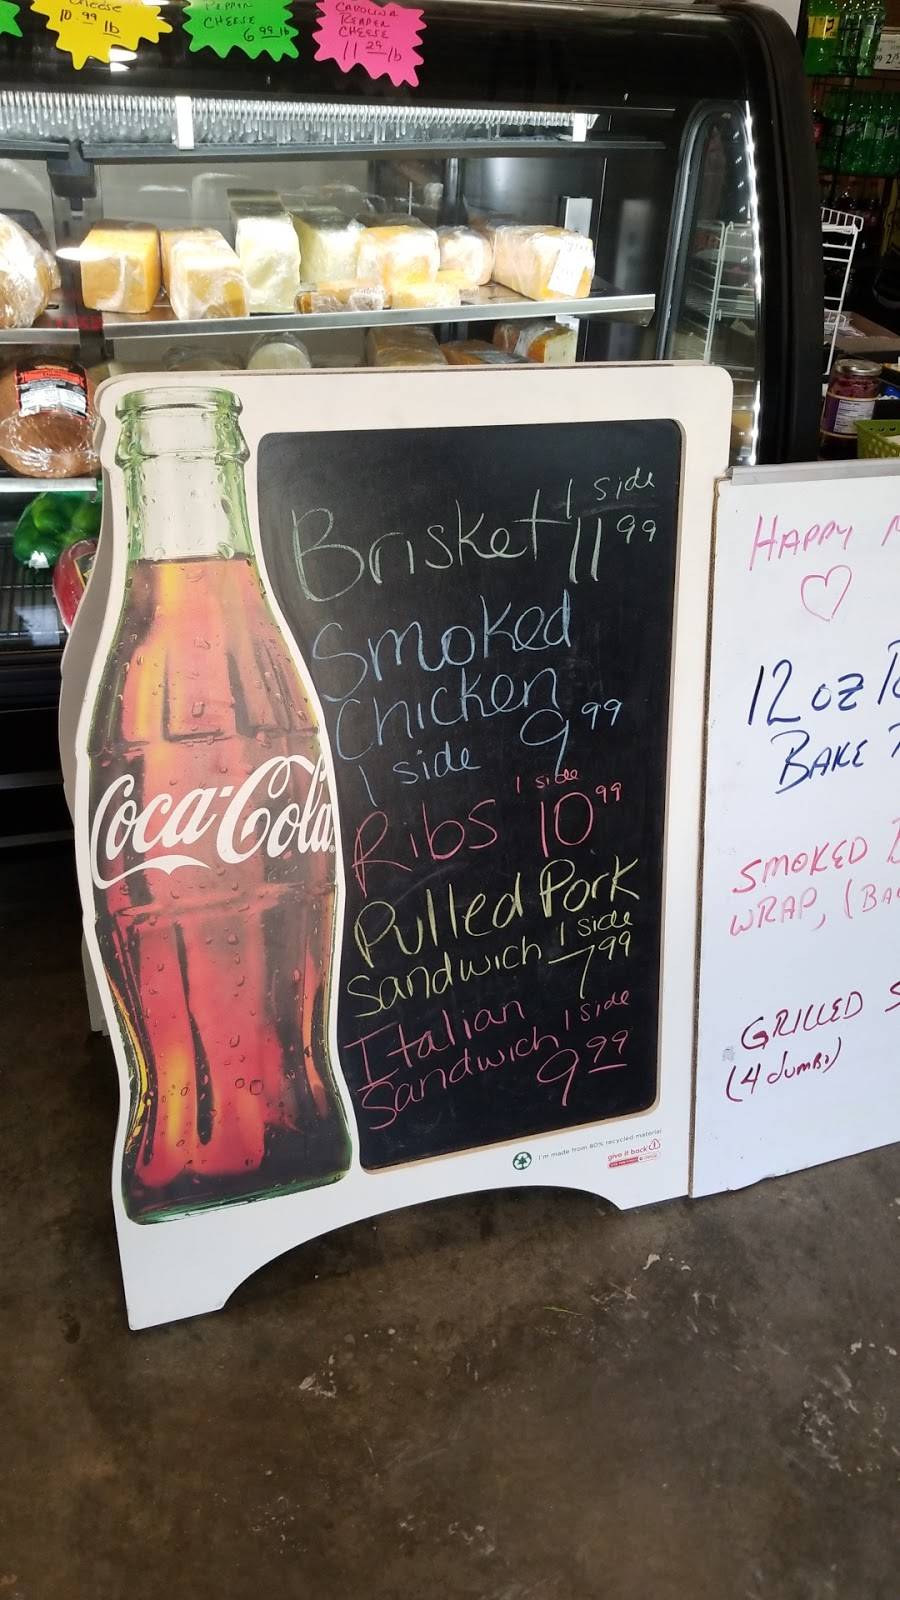 Cheese
10.99 lb
PEPPER
CHEESE
6.99 lb
CAROLINA
REAPER
CHEESE
11.29/lb
Brisket 1 side
11.99
Smoked
Chicken
1 side 9.99
Ribs 1 side 10.99
Pulled Pork
Sandwich 1 side
7.99
Italian
Sandwich 1 side
9.99
Coca-Cola
I'm made from 80% recycled material
give it back
HAPPY
12 oz
BAKE
SMOKED
WRAP,
GRILLED